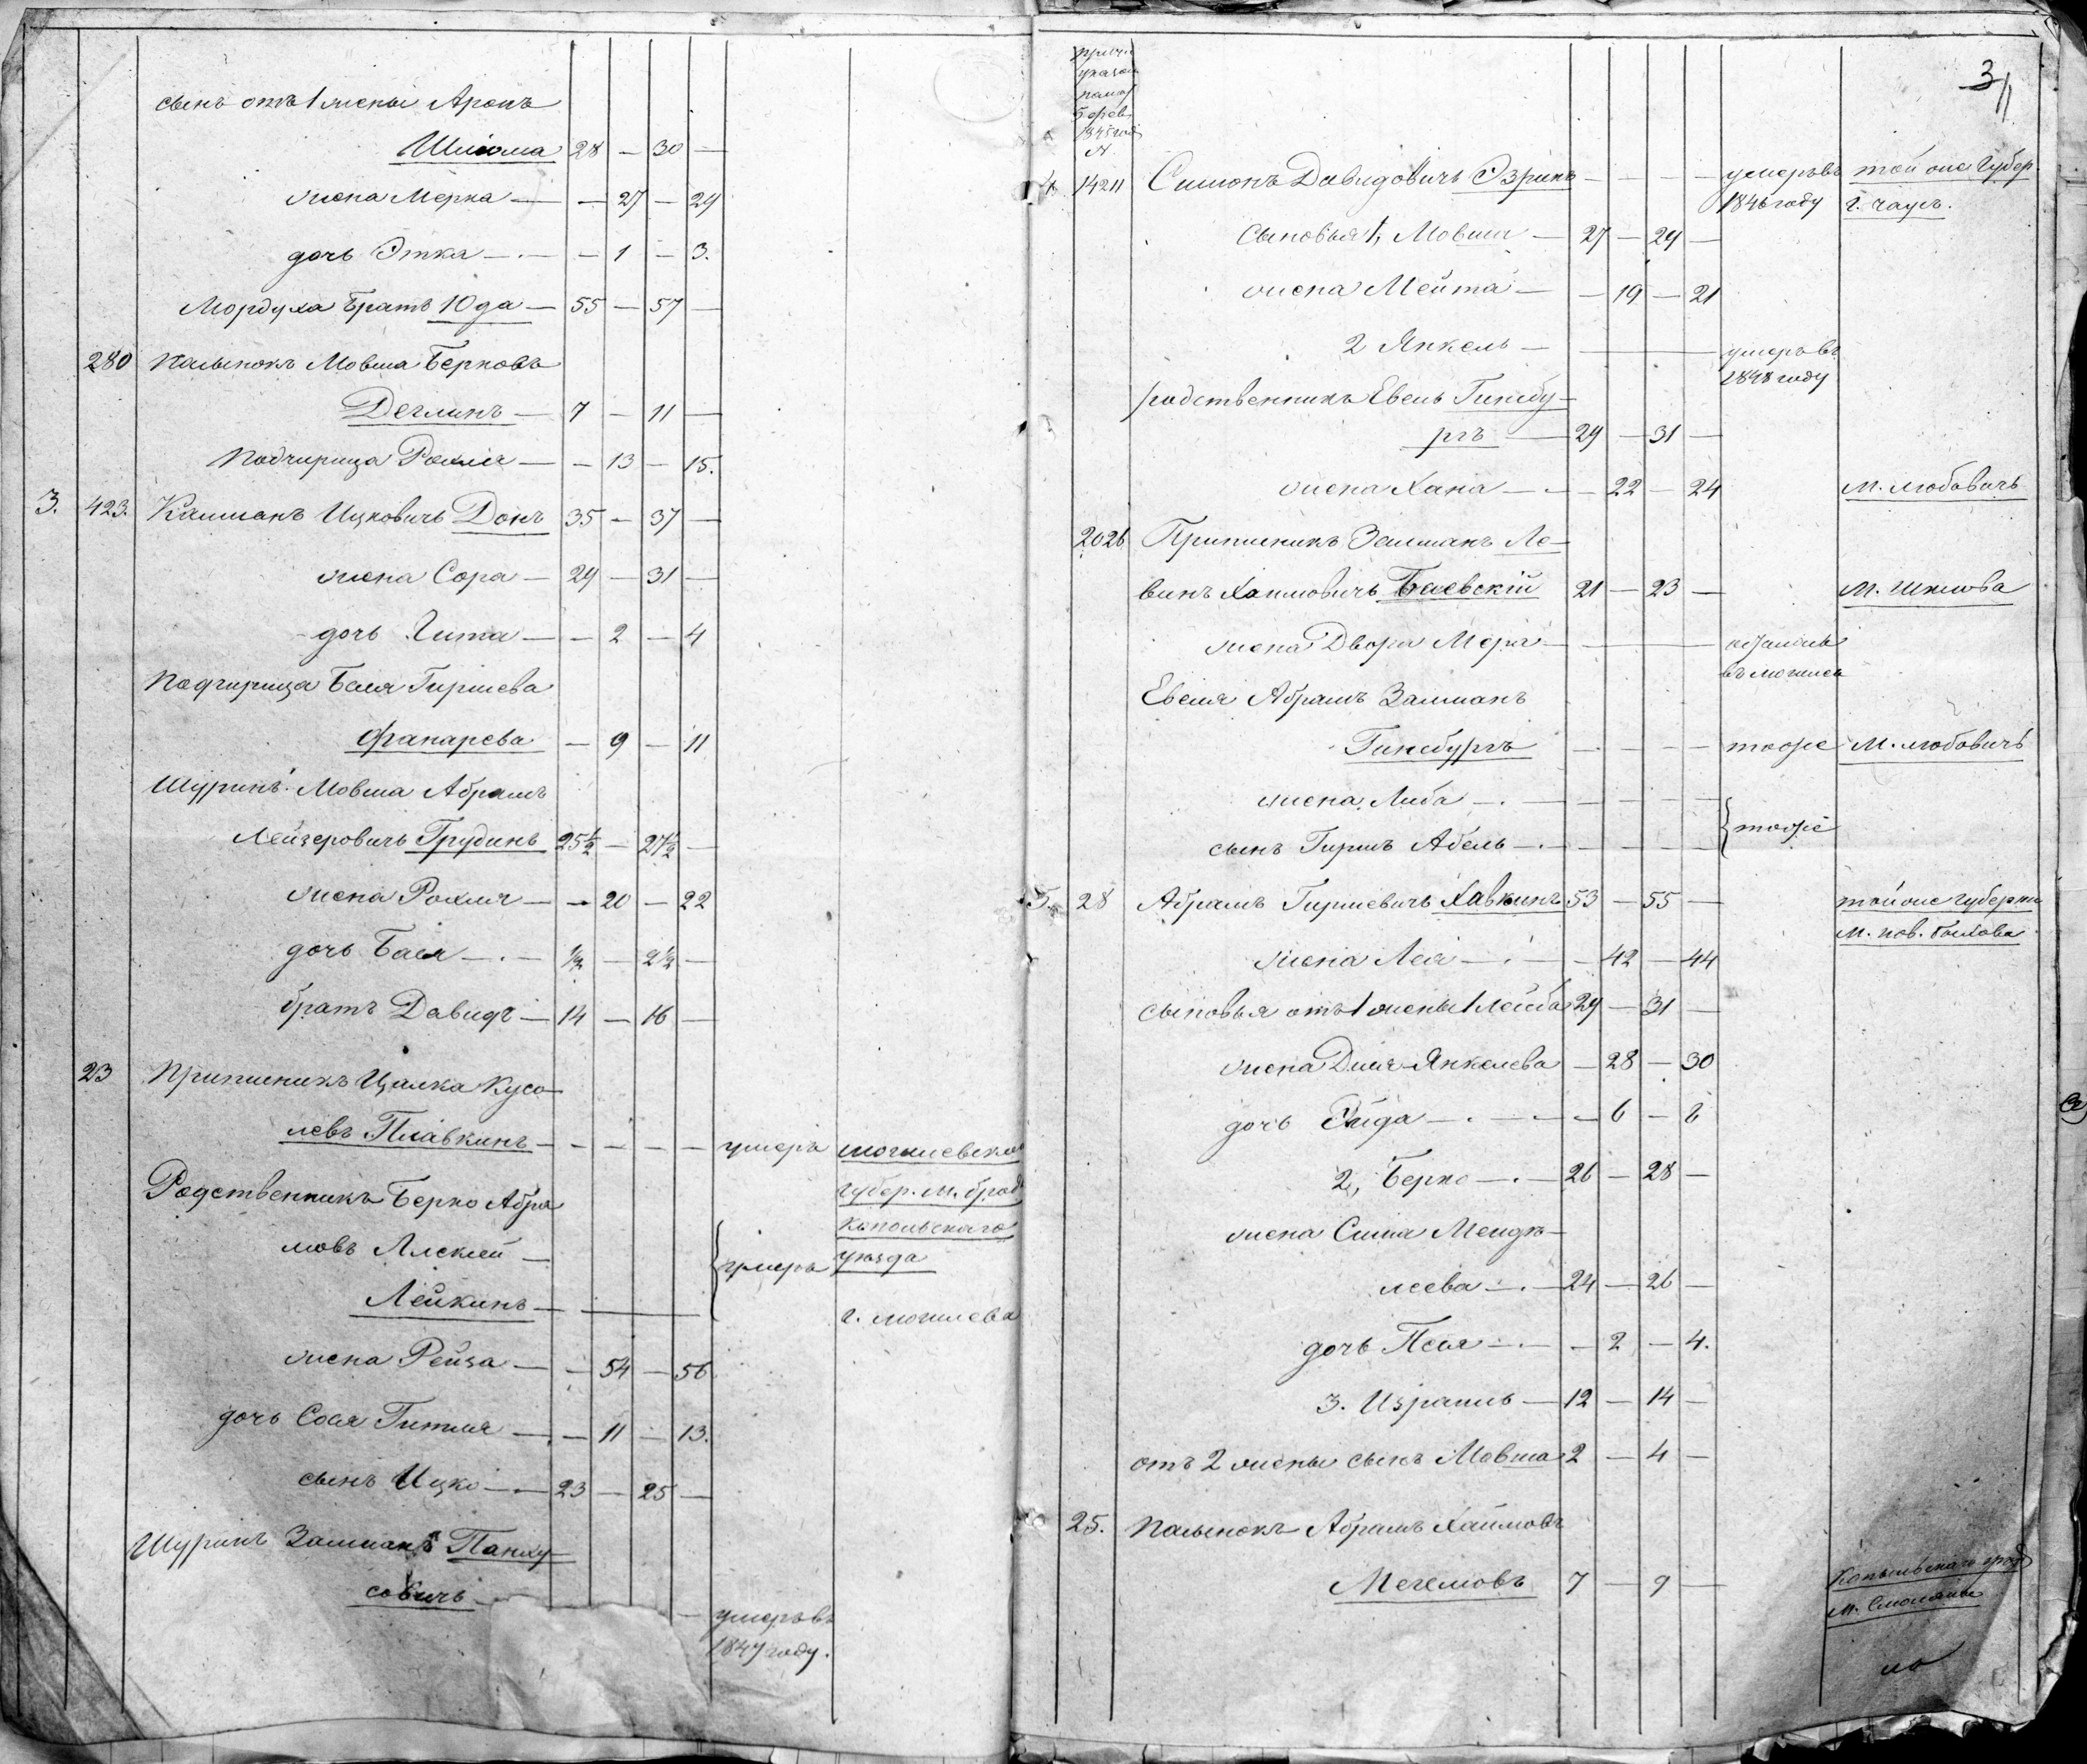 сынъ отъ 1 жены Аронъ
Шліома 28 — 30 —
жена Мерка — — 27 — 29
дочь Этка — — 1 — 3.
Мордуха братъ Юда — 55 — 57 —
280 Пасынокъ Мовша Берковъ
Деглинъ — 7 — 11 —
Падчирица Рохля — — 13 — 15.
3. 423. Калманъ Ицковичъ Донъ 35 — 37 —
жена Сора — 29 — 31 —
дочь Гита — — 2 — 4
Падчирица Бася Гиршева
Фанарева — 9 — 11
Шуринъ Мовша Абрамъ
Лейзеровичъ Грудинъ 25½ — 27½ —
жена Рохля — — 20 — 22
дочь Бася — ½ — 2½ —
братъ Давидъ — 14 — 16 —
23 Припишникъ Цалка Кусе
левъ Плавкинъ — — — — — умеръ могилевской
губер. м. брод
Родственникъ Берко Абра
копольскаго
мовъ — умеръ уезда
Лейкинъ —
г. могилева
жена Рейза — — 54 — 56
дочь Сося Гитля — — 11 — 13.
сынъ Ицко — 23 — 25 —
Шуринъ Залманъ Панху
совичъ — — умеръ въ
1847 году.
3
указом
1845 год
№
4. 1421 Симонъ Давидовичъ Эзринъ — — — — умеръ въ той же Губер.
1846 году г. чаусъ.
Сыновья 1, Мовша — 27 — 29 —
жена Мейта — — 19 — 21
2 Янкель — умеръ въ
1848 году
родственникъ Евель Гинсбу
ргъ — 29 — 31 —
жена Хана — — 22 — 24 м. любавичъ
2026 Припишникъ Залманъ Ле
винъ Хаимовичъ Баевскій 21 — 23 — м. шклова
жена Двора Мера —
въ могилев
Евеля Абрамъ Залманъ
Гинсбургъ — — — — тоже м. любовичъ
жена Либа — — — — —
тоже
сынъ Гиршъ Абель — — — — —
5. 28 Абрамъ Гиршевичъ Хавкинъ 53 — 55 — той же губерни
м. нов. быхова
жена Лея — — 42 — 44
сыновья отъ 1 жены 1 Лейба 29 — 31 —
жена Дися Янкелева — 28 — 30
дочь Эйда — — 6 — 8
2, Берко — 26 — 28 —
жена Сима Менде
леева — 24 — 26 —
дочь Песя — — 2 — 4.
3. Израиль — 12 — 14 —
отъ 2 жены сынъ Мовша 2 — 4 —
25. Пасынокъ Абрамъ Хаимовъ
Меклмовъ 7 — 9 —
м. Смоляны